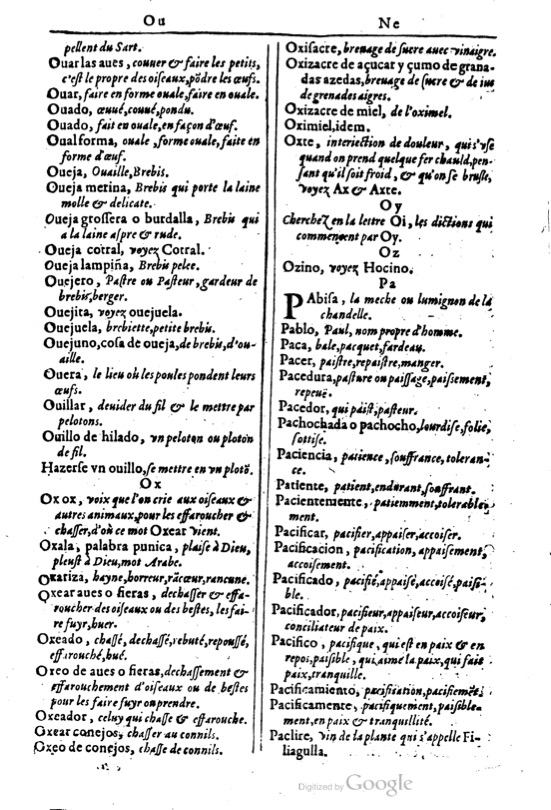 Ou
pellent du Sart.
Ouar las aues, couuer & faire les petits,
c'est le propre des oiseaux, pōdre les œufs.
Ouar, faire en forme ouale, faire en ouale.
Ouado, œuué, couué, pondu.
Ouado, fait en ouale, en façon d'œuf.
Oual forma, ouale, forme ouale, faite en
forme d'œuf.
Oueja, Ouaille, Brebis.
Oueja merina, Brebis qui porte la laine
molle & delicate.
Oueja grossera o burdalla, Brebis qui
a la laine aspre & rude.
Oueja corral, voyez Corral.
Oueja lampiña, Brebis pelee.
Ouejero, Pastre ou Pasteur, gardeur de
brebis, berger.
Ouejita, voyez ouejuela.
Ouejuela, brebiette, petite brebis.
Ouejuno, cosa de oueja, de brebis, d'ou-
aille.
Ouera, le lieu où les poules pondent leurs
œufs.
Ouillar, deuider du fil & le mettre par
pelotons.
Ouillo de hilado, vn peloton ou ploton
de fil.
Hazerse vn ouillo, se mettre en vn plotō.
Ox
Ox ox, voix que l'on crie aux oiseaux &
autres animaux, pour les effaroucher &
chasser, d'où ce mot Oxear vient.
Oxala, palabra punica, plaise à Dieu,
pleust à Dieu, mot Arabe.
Oxariza, hayne, horreur, rācœur, rancune.
Oxear aues o fieras, dechasser & effa-
roucher des oiseaux ou des bestes, les fai-
re fuyr, huer.
Oxeado, chassé, dechassé, rebuté, repoussé,
effarouché, hué.
Oxeo de aues o fieras, dechassement &
effarouchement d'oiseaux ou de bestes
pour les faire fuyr ou prendre.
Oxeador, celuy qui chasse & effarouche.
Oxear conejos, chasser au connils.
Oxeo de conejos, chasse de connils.
Ne
Oxisacre, breuage de sucre auec vinaigre.
Oxizacre de açucar y çumo de grana-
das azedas, breuage de sucre & de ius
de grenades aigres.
Oxizacre de miel, de l'oximel.
Oximiel, idem.
Oxte, interiection de douleur, qui s'vse
quand on prend quelque fer chauld, pen-
sant qu'il soit froid, & qu'on se brusle,
voyez Ax & Axte.
Oy
Cherchez en la lettre Oi, les dictions qui
commencent par Oy.
Oz
Ozino, voyez Hocino.
Pa
PAbisa, la meche ou lumignon de la
chandelle.
Pablo, Paul, nom propre d'homme.
Paca, bale, pacquet, fardeau.
Pacer, paistre, repaistre, manger.
Pacedura, pasture ou paissage, paisement,
repeuë.
Pacedor, qui paist, pasteur.
Pachochada o pachocho, lourdise, folie,
sottise.
Paciencia, patience, souffrance, toleran-
ce.
Patiente, patient, endurant, souffrant.
Pacientemente, patiemment, tolerable-
ment.
Pacificar, pacifier, appaiser, accoiser.
Pacificacion, pacification, appaisement,
accoisement.
Pacificado, pacifié, appaisé, accoisé, paisi-
ble.
Pacificador, pacifieur, appaiseur, accoiseur,
conciliateur de paix.
Pacifico, pacifique, qui est en paix & en
repos, paisible, qui aime la paix, qui fait
paix, tranquille.
Pacificamiento, pacification, pacifiemēt.
Pacificamente, pacifiquement, paisible-
ment, en paix & tranquillité.
Paclire, vin de la plante qui s'appelle Fi-
liagulla.
Digitized by Google